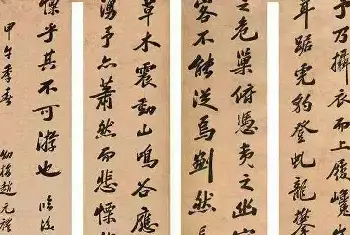 予乃攝衣而上履巉
茸踞虎豹登虬龍攀
之危巢俯憑夷之幽宮
客不能從焉劃然長
草木震動山鳴谷應
湧予亦蕭然而悲
乎其不可留也
甲午季春 幼梅趙元禮